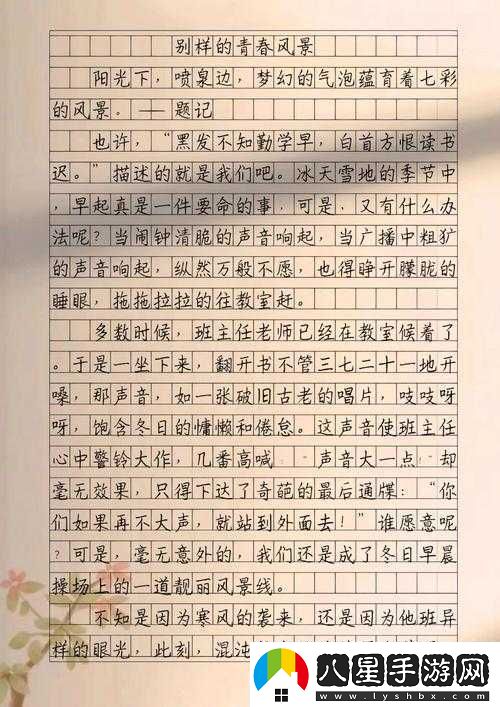 别样的青春风景
阳光下，喷泉边，梦幻的气泡蕴育着七彩
的风景。——题记
也许，“黑发不知勤学早，白首方恨读书
迟。”描述的就是我们吧。冰天雪地的季节中
，早起真是一件要命的事，可是，又有什么办
法呢？当闹钟清脆的声音响起，当广播中粗犷
的声音响起，纵然万般不愿，也得睁开朦胧的
睡眼，拖拖拉拉的往教室赶。
多数时候，班主任老师已经在教室候着了
。于是一坐下来，翻开书不管三七二十一地开
嗓，那声音，如一张破旧古老的唱片，吱吱呀
呀，饱含冬日的慵懒和倦怠。这声音使班主任
心中警铃大作，几番高喊 声音大一点 却
毫无效果，只得下达了奇葩的最后通牒：“你
们如果再不大声，就站到外面去！”谁愿意呢
？可是，毫无意外的，我们还是成了冬日早晨
操场上的一道靓丽风景线。
不知是因为寒风的袭来，还是因为他班异
样的眼光，此刻，混沌
八星手游网
www.lyshbx.com